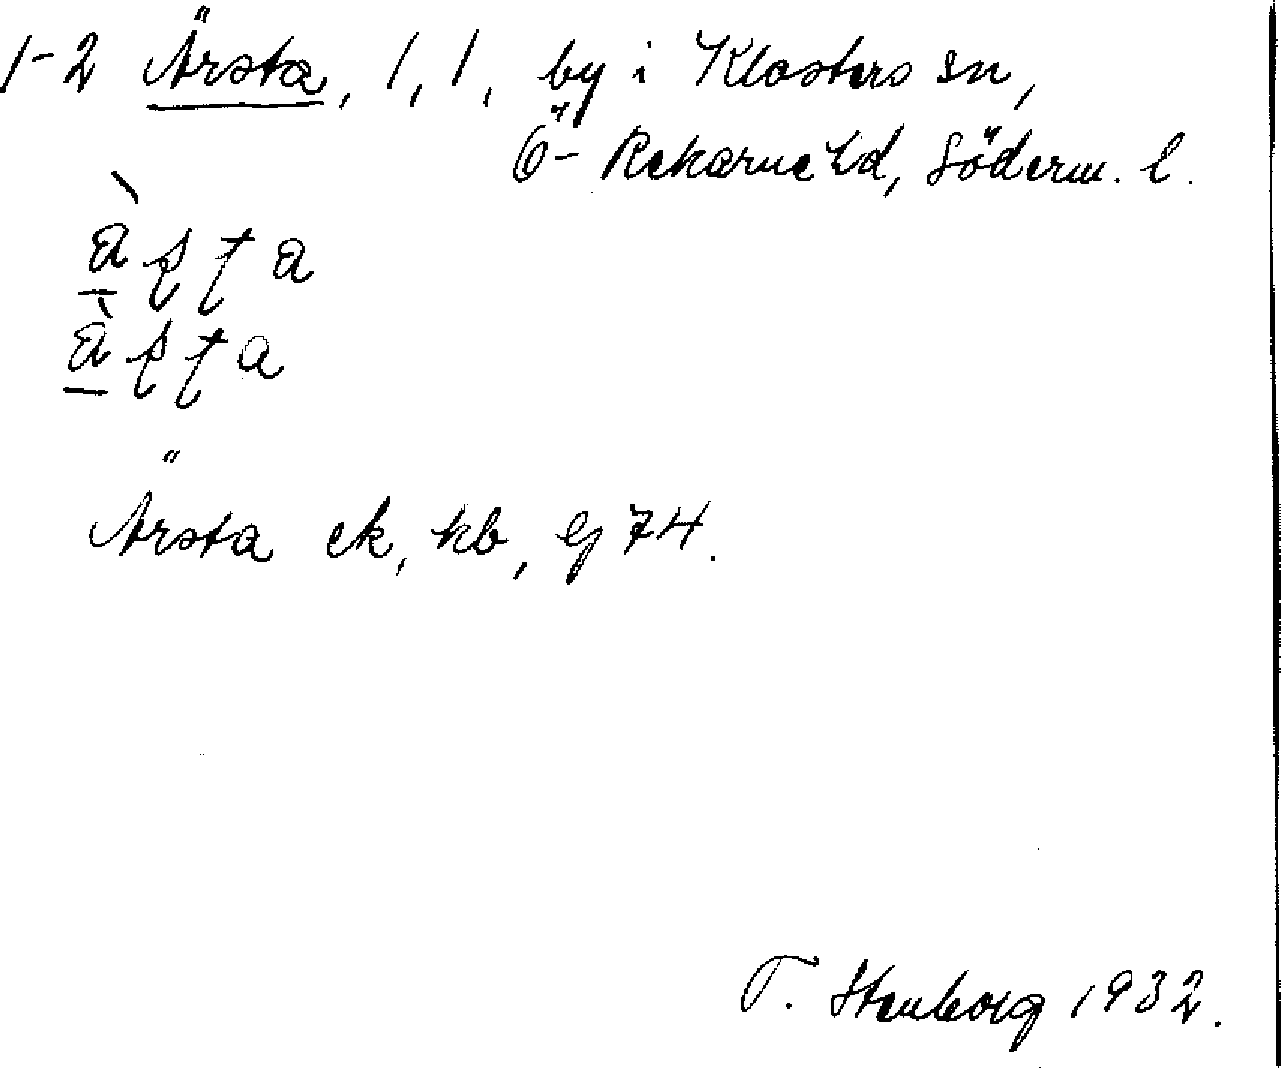 1-2 Ärsta, 1, 1, by i Klosters sn,
Ö- Rekarne hd, Söderm. l.
Ärsta ek, kb, gj 74.
T. Stenborg 1932.